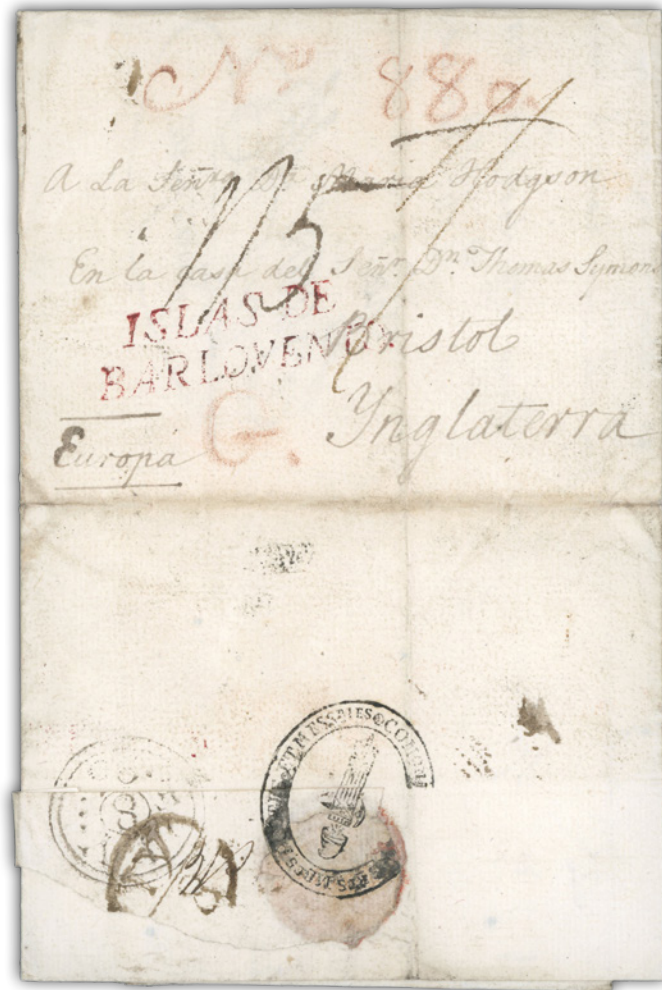 No 880.
A La Señra Dª Maria Hodgson
En la casa del Señr Dn Thomas Symons
115
ISLAS DE
BARLOVENTO.
Bristol
Ynglaterra
Europa
G.
ET MESSAIES